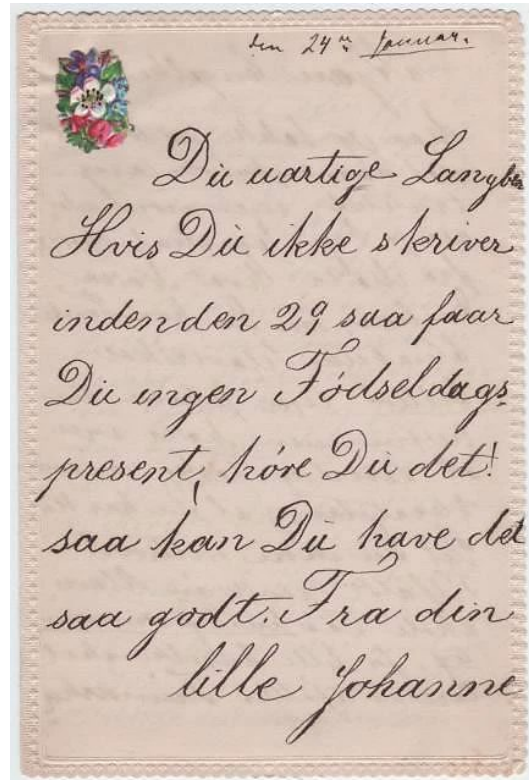 den 24de Januar.
Du uartige Langben
Hvis Du ikke skriver
inden den 29 saa faar
Du ingen Fødseldags-
present, høre Du det!
saa kan Du have det
saa godt. Fra din
lille Johanne